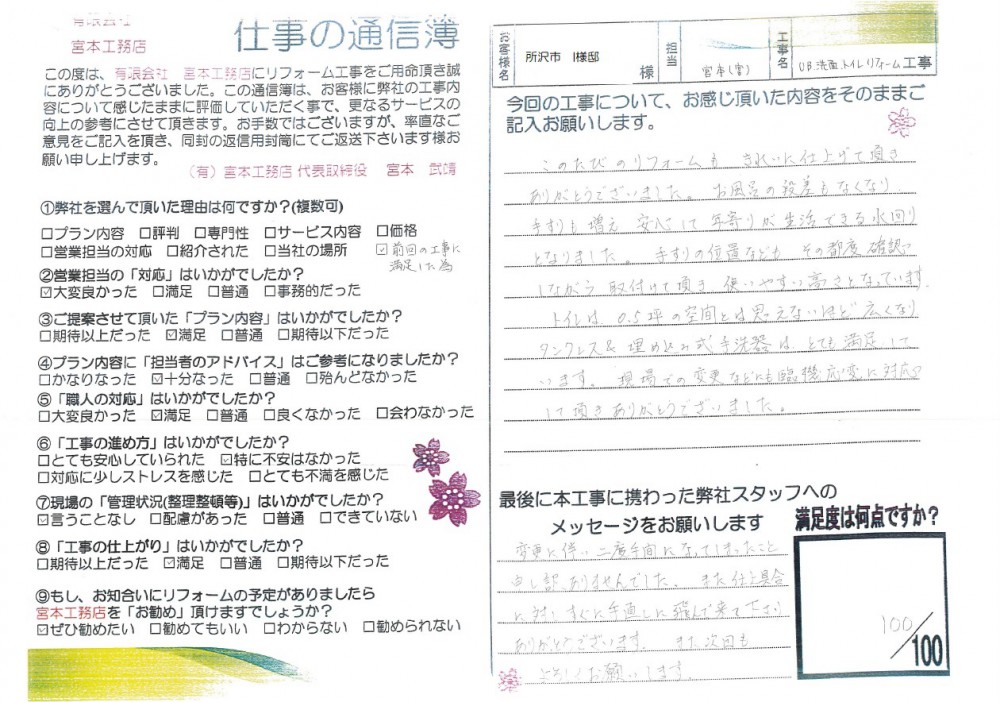 有限会社
宮本工務店
仕事の通信簿
この度は、有限会社 宮本工務店にリフォーム工事をご用命頂き誠
にありがとうございました。この通信簿は、お客様に弊社の工事内
容について感じたままに評価していただく事で、更なるサービスの
向上の参考にさせて頂きます。お手数ではございますが、率直なご
意見をご記入を頂き、同封の返信用封筒にてご返送下さいます様お
願い申し上げます。
(有)宮本工務店 代表取締役 宮本 武靖
①弊社を選んで頂いた理由は何ですか?(複数可)
□プラン内容 □評判 □専門性 □サービス内容 □価格
□営業担当の対応 □紹介された □当社の場所 ☑前回の工事に
満足した為
②営業担当の「対応」はいかがでしたか?
☑大変良かった □満足 □普通 □事務的だった
③ご提案させて頂いた「プラン内容」はいかがでしたか?
□期待以上だった ☑満足 □普通 □期待以下だった
④プラン内容に「担当者のアドバイス」はご参考になりましたか?
□かなりなった ☑十分なった □普通 □殆んどなかった
⑤「職人の対応」はいかがでしたか?
□大変良かった ☑満足 □普通 □良くなかった □会わなかった
⑥「工事の進め方」はいかがでしたか?
□とても安心していられた ☑特に不安はなかった
□対応に少しストレスを感じた □とても不満を感じた
⑦現場の「管理状況(整理整頓等)」はいかがでしたか?
☑言うことなし □配慮があった □普通 □できていない
⑧「工事の仕上がり」はいかがでしたか?
□期待以上だった ☑満足 □普通 □期待以下だった
⑨もし、お知合いにリフォームの予定がありましたら
宮本工務店を「お勧め」頂けますでしょうか?
☑ぜひ勧めたい □勧めてもいい □わからない □勧められない
お客様名 所沢市 I様邸 様 担当 宮本(管) 工事名 UB、洗面、トイレリフォーム工事
今回の工事について、お感じ頂いた内容をそのままご
記入お願いします。
このたびのリフォームも きれいに仕上げて頂き
ありがとうございました。 お風呂の段差もなくなり
手すりも増え 安心して 年寄りが 生活できる水回り
となりました。 手すりの位置なども その都度 確認
しながら 取付けて頂き 使いやすい高さとなっています。
トイレは 0.5坪の空間とは思えないほど 広くなり
タンクレス& 埋め込み式手洗器は とても満足して
います。 現場での変更などにも臨機応変に対応
して頂きありがとうございました。
最後に本工事に携わった弊社スタッフへの
メッセージをお願いします
変更に伴い 二度手間になってしまったこと
申し訳ありませんでした。 また仕上具合
に対しすぐに手直しに飛んで来て下さり
ありがとうございます。 また次回も
よろしくお願いします。
満足度は何点ですか?
100/100